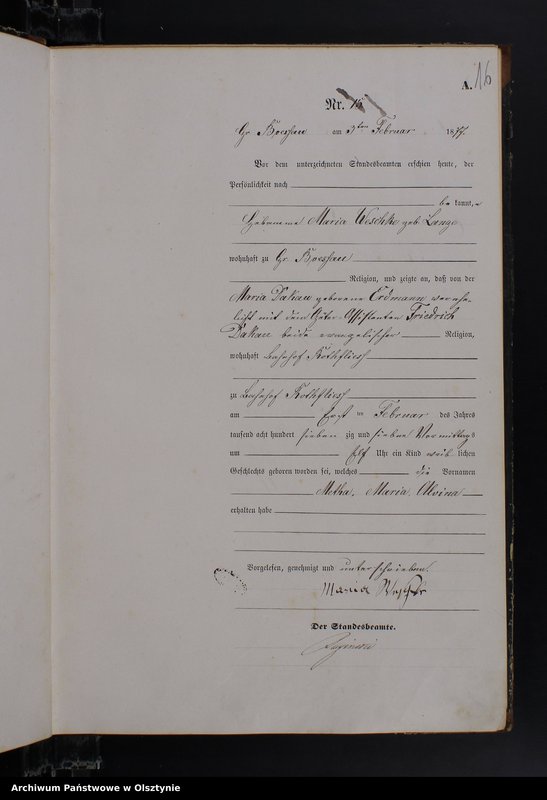 A. 16
Nr. 15
Gr. Boessau am 3ten Februar 1877.
Vor dem unterzeichneten Standesbeamten erschien heute, der
Persönlichkeit nach
be kannt, e
Hebamme Maria Weschke geb. Lange
wohnhaft zu Gr. Boessau
Religion, und zeigte an, daß von der
Maria Dakau geborene Erdmann verehe-
licht mit dem Güter-Assistenten Friedrich
Dakau beide evangelischer Religion,
wohnhaft Bahnhof Rothfliess
zu Bahnhof Rothfliess
am ten Februar des Jahres
tausend acht hundert sieben zig und sieben Vormittags
um Elf Uhr ein Kind weib lichen
Geschlechts geboren worden sei, welches die Vornamen
Metha, Maria, Alvina
erhalten habe
Vorgelesen, genehmigt und unterschrieben.
Maria
Der Standesbeamte.
Archiwum Państwowe w Olsztynie